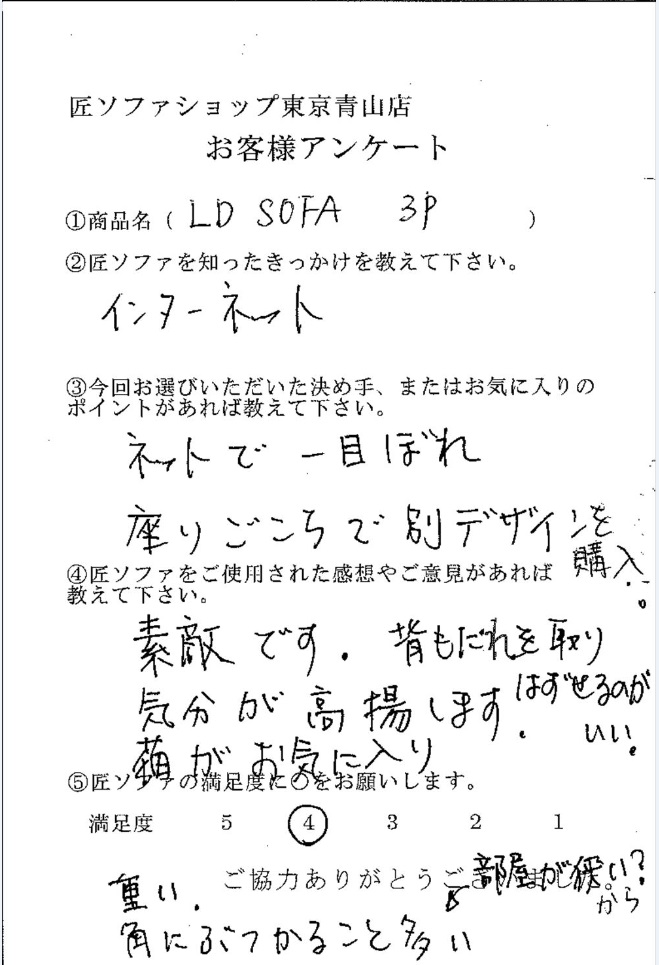 匠ソファショップ東京青山店
お客様アンケート
①商品名（ LD SOFA 3P ）
②匠ソファを知ったきっかけを教えて下さい。
インターネット
③今回お選びいただいた決め手、またはお気に入りの
ポイントがあれば教えて下さい。
ネットで一目ぼれ
座りごこちで別デザインを
購入.
④匠ソファをご使用された感想やご意見があれば
教えて下さい。
素敵です. 背もたれを取り
はずせるのが
いい.
気分が高揚します.
猫がお気に入り
⑤匠ソファの満足度に○をお願いします。
満足度 5 4 3 2 1
ご協力ありがとうござ
重い.
部屋が狭い?
から
角にぶつかること多い